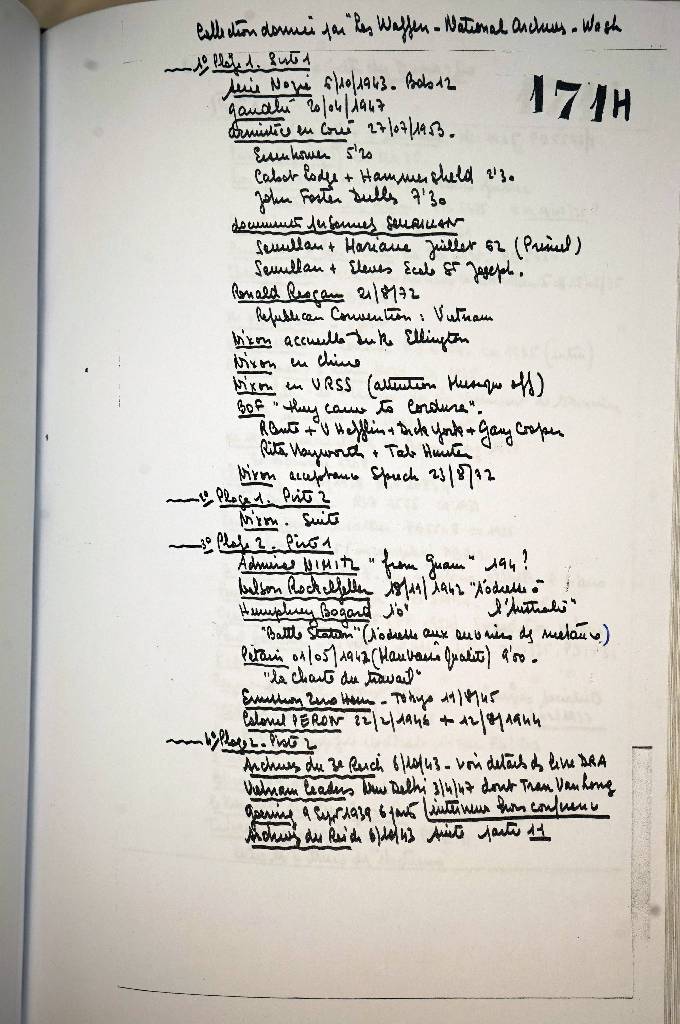 Collection donnée par "Les Waffen - National Archives - Wash
171H
1º Plage 1. Piste 1
Série Nazie 6/10/1943. Bob 12
Gandhi 20/04/1947
Armistice en Corée 27/07/1953.
Eisenhower 5'20
Cabot Lodge + Hammersheld 2'30
John Foster Dulles 7'30
documents personnels
+ Mariane Juillet 62
+ Eleves Ecole St Joseph.
Ronald Reagan 21/8/72
Republican Convention : Vietnam
Nixon accueille Duke Ellington
Nixon en Chine
Nixon en URSS (attention Musique off)
BOF "they came to Cordura".
+ V Hefflin + Dick York + Gary Cooper
Rita Hayworth + Tab Hunter
Nixon acceptance Speech 23/8/72
2º Plage 1. Piste 2
Nixon. Suite
3º Plage 2. Piste 1
Admiral NIMITZ "from Guam" 194 ?
Nelson Rockefeller 18/11/1942 "s'adresse à
Humphrey Bogard 10' l'Australie"
"Battle Station" (s'adresse aux ouvriers ds metaux)
Petain 01/05/1942 (Mauvaise Qualité) 9'00.
"la Charte du travail"
Emission Zero Hour - Tokyo 11/8/45
Colonel PERON 22/2/1946 + 12/8/1944
4º Plage 2. Piste 2
Archives du 3e Reich 6/10/43 - voir details ds livre
Vietnam Leaders New Delhi 3/4/47 dont Tran Van
Goering 9 Sept 1939 6 parts
Archives du Reich 6/10/43 suite partie 11